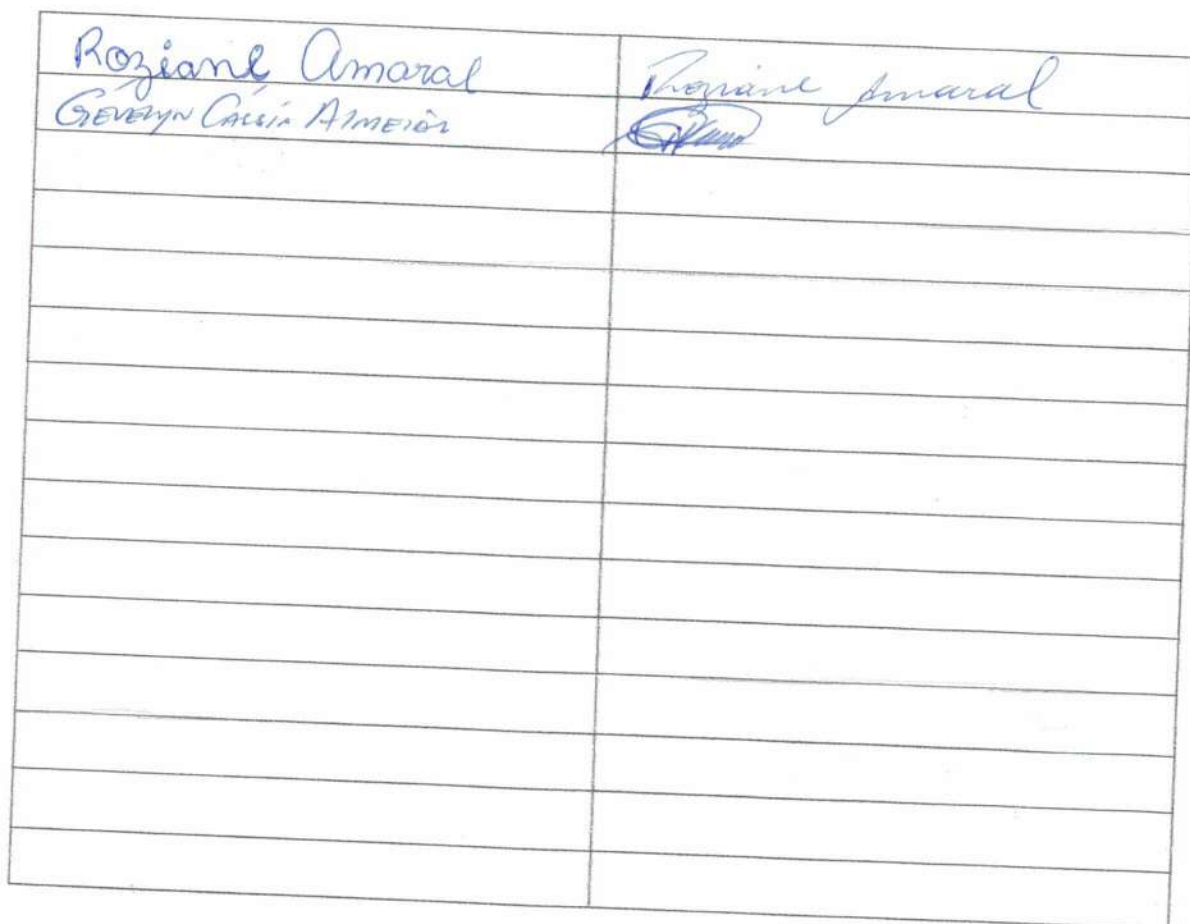 Roziane Amaral Roziane Amaral
Gevelyn Cássia Almeida